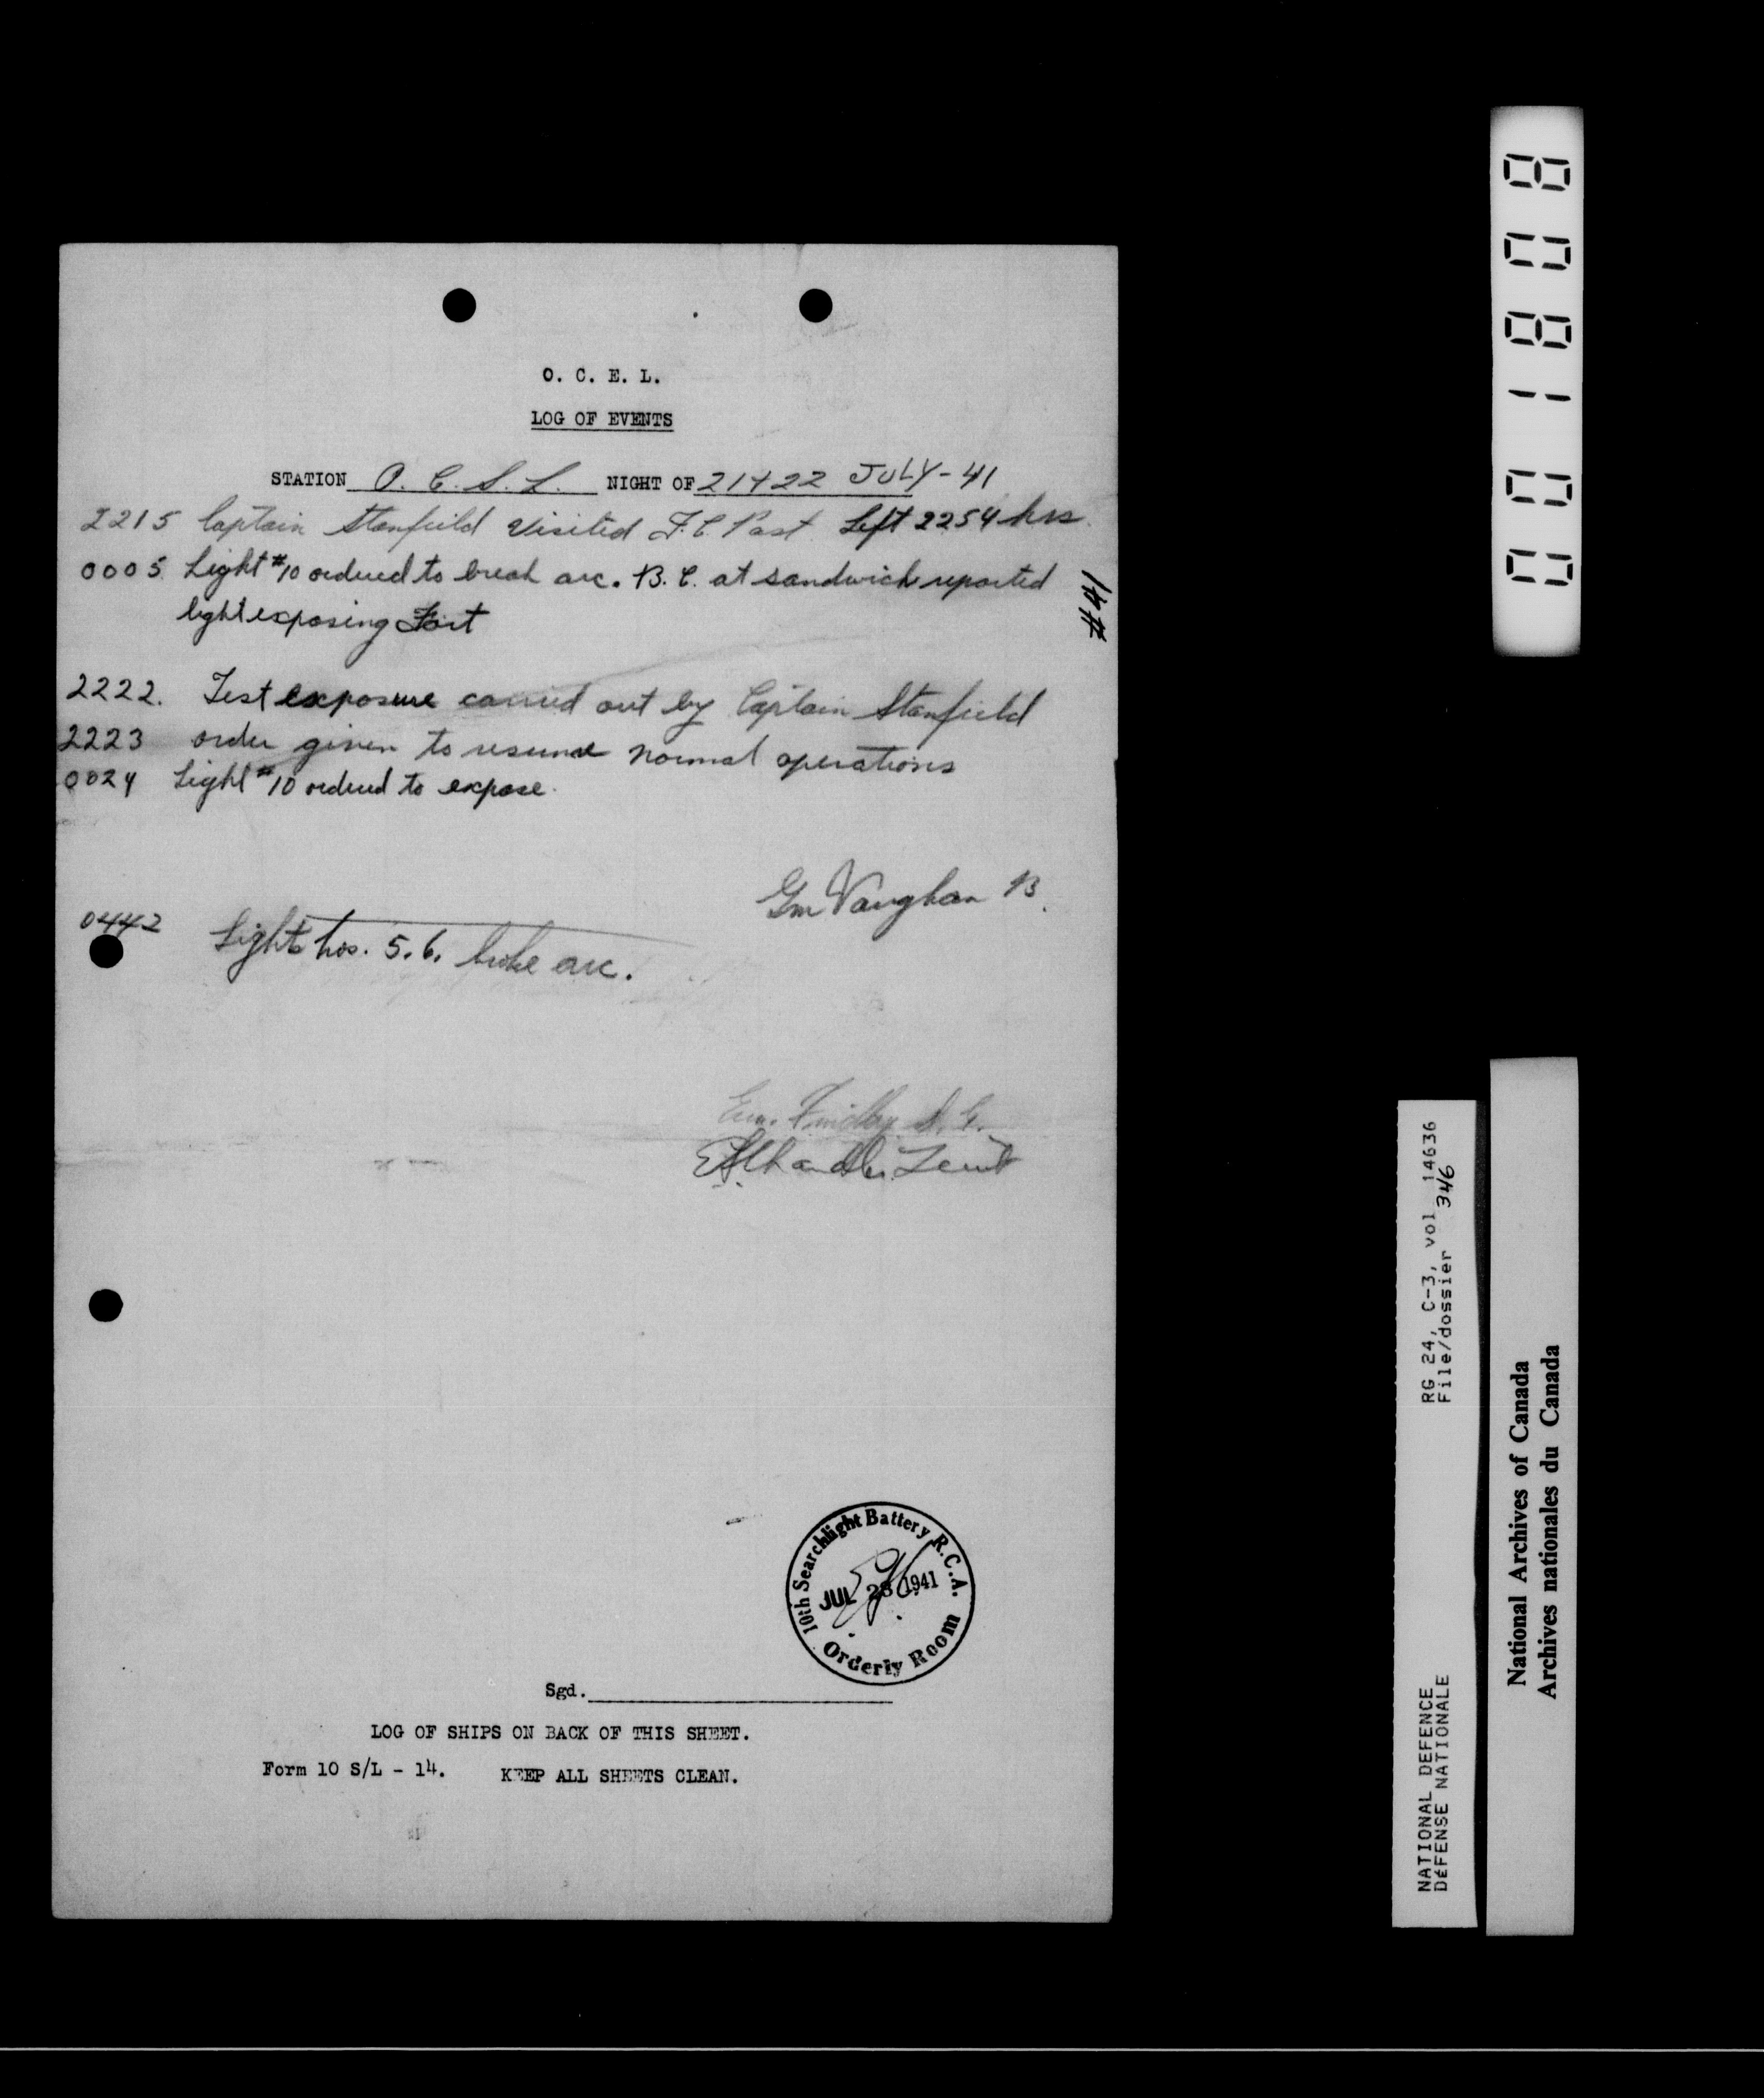 O. C. E. L.
LOG OF EVENTS
STATION O. C. S. L. NIGHT OF 21+22 JULY-41
2215 Captain Stanfield visited F.C. Post. Left 2254 hrs.
0005 Light #10 ordered to break arc. B. C. at sandwich reported
light exposing Fort
#41
2222. Test exposure carried out by Captain Stanfield
2223 order given to resume normal operations
0024 Light #10 ordered to expose.
Gnr Vaughan B.
0442 Lights nos. 5. 6. broke arc.
Gnr. Findlay
Lieut
10th Searchlight Battery R.C.A.
JUL 23 1941
Orderly Room
Sgd.
LOG OF SHIPS ON BACK OF THIS SHEET.
Form 10 S/L - 14. KEEP ALL SHEETS CLEAN.
0001808
RG 24, C-3, vol 14636
File/dossier 346
NATIONAL DEFENCE
DÉFENSE NATIONALE
National Archives of Canada
Archives nationales du Canada